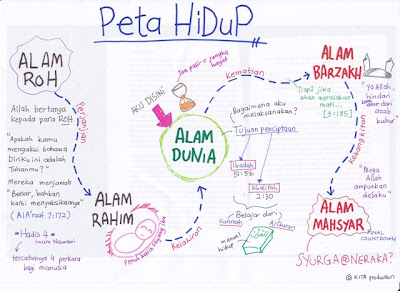 Peta HiDuP
ALAM
ROH
Allah bertanya
kepada para ROH
"Apakah kamu
mengakui bahawa
Diriku ini adalah
Tuhanmu?"
Mereka menjawab
"Benar, bahkan
kami menyaksikannya"
(Al A'raf 7:172)
• Hadis 4 •
Imam Nawawi
tercatatnya 4 perkara
bagi manusia
perjanjian
ALAM
RAHIM
Penuh kasih sayang ibu
Kelahiran
AKU DISINI
Jam pasir = jangka
hayat
ALAM
DUNIA
Kematian
Bagaimana aku
melaksanakan?
Tujuan penciptaan
Ibadah
51:56
Khalifah
2:30
Belajar dari:
Sunnah
Al Quran
manual
hidup
Tiap2 jiwa
akan merasakan
mati...
[3:185]
ALAM
BARZAKH
"Ya Allah,
hindari
azab
kubur"
Kebangkitan
"Moga
Allah
ampunkan
dosaku"
ALAM
MAHSYAR
FINAL
COUNTDOWN
SYURGA@NERAKA?
© KITA production